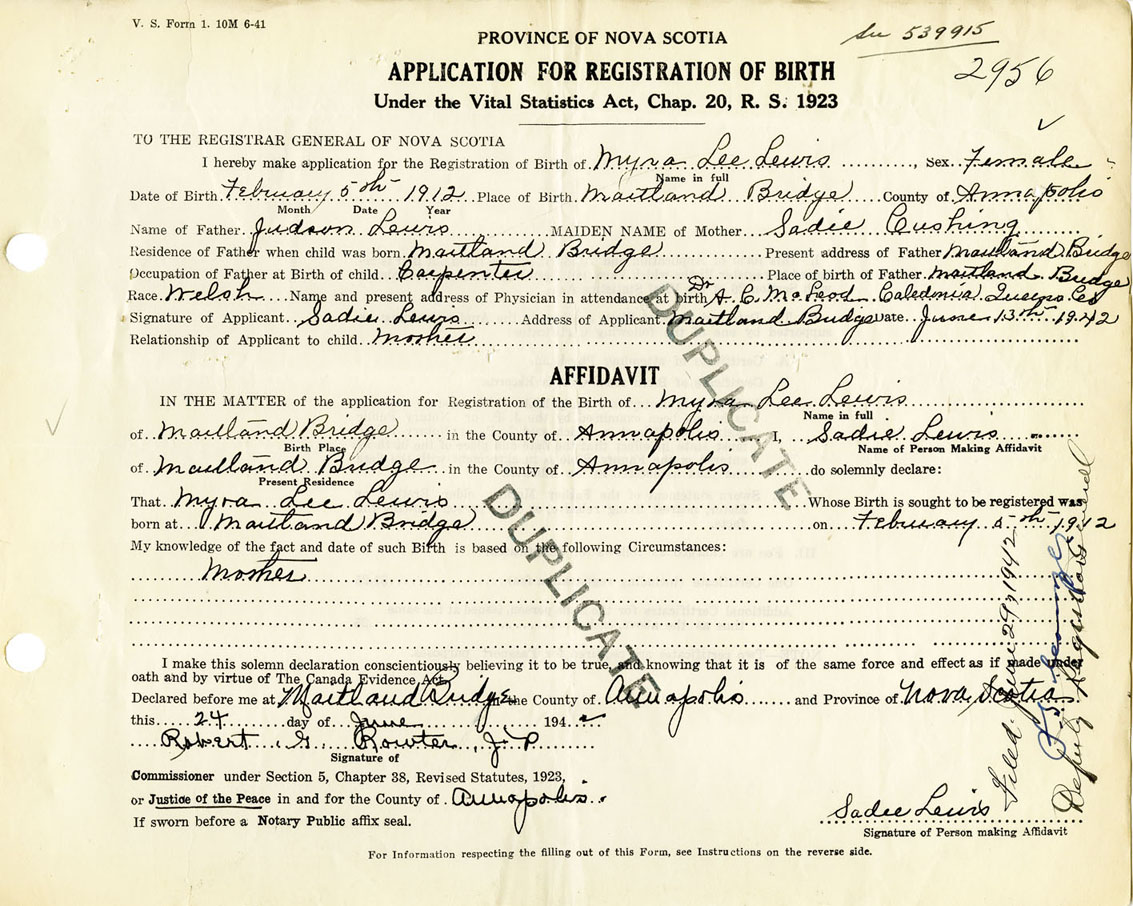 V. S. Form 1. 10M 6-41
See 539915
PROVINCE OF NOVA SCOTIA
2956
APPLICATION FOR REGISTRATION OF BIRTH
Under the Vital Statistics Act, Chap. 20, R. S. 1923
TO THE REGISTRAR GENERAL OF NOVA SCOTIA
I hereby make application for the Registration of Birth of Myra Lee Lewis, Sex Female
Name in full
Date of Birth February 5th 1912 Place of Birth Maitland Bridge County of Annapolis
Month Date Year
Name of Father Judson Lewis MAIDEN NAME of Mother Sadie Cushing
Residence of Father when child was born Maitland Bridge Present address of Father Maitland Bridge
Occupation of Father at Birth of child Carpenter Place of birth of Father Maitland Bridge
Race Welsh Name and present address of Physician in attendance at birth Dr A. C. McLeod Caledonia Queens Co
Signature of Applicant Sadie Lewis Address of Applicant Maitland Bridge Date June 13th 1942
Relationship of Applicant to child Mother
AFFIDAVIT
IN THE MATTER of the application for Registration of the Birth of Myra Lee Lewis
Name in full
of Maitland Bridge in the County of Annapolis I, Sadie Lewis
Birth Place Name of Person Making Affidavit
of Maitland Bridge in the County of Annapolis do solemnly declare:
Present Residence
That Myra Lee Lewis Whose Birth is sought to be registered was
born at Maitland Bridge on February 5th 1912
My knowledge of the fact and date of such Birth is based on the following Circumstances:
Mother
I make this solemn declaration conscientiously believing it to be true, and knowing that it is of the same force and effect as if made under
oath and by virtue of The Canada Evidence Act.
Declared before me at Maitland Bridge in the County of Annapolis and Province of Nova Scotia
this 24 day of June 1942
Robert G. Rowter, J. P.
Signature of
Commissioner under Section 5, Chapter 38, Revised Statutes, 1923,
or Justice of the Peace in and for the County of Annapolis
If sworn before a Notary Public affix seal.
Sadie Lewis
Signature of Person making Affidavit
For Information respecting the filling out of this Form, see Instructions on the reverse side.
DUPLICATE
DUPLICATE
Filed June 29, 1942
Deputy Registrar General